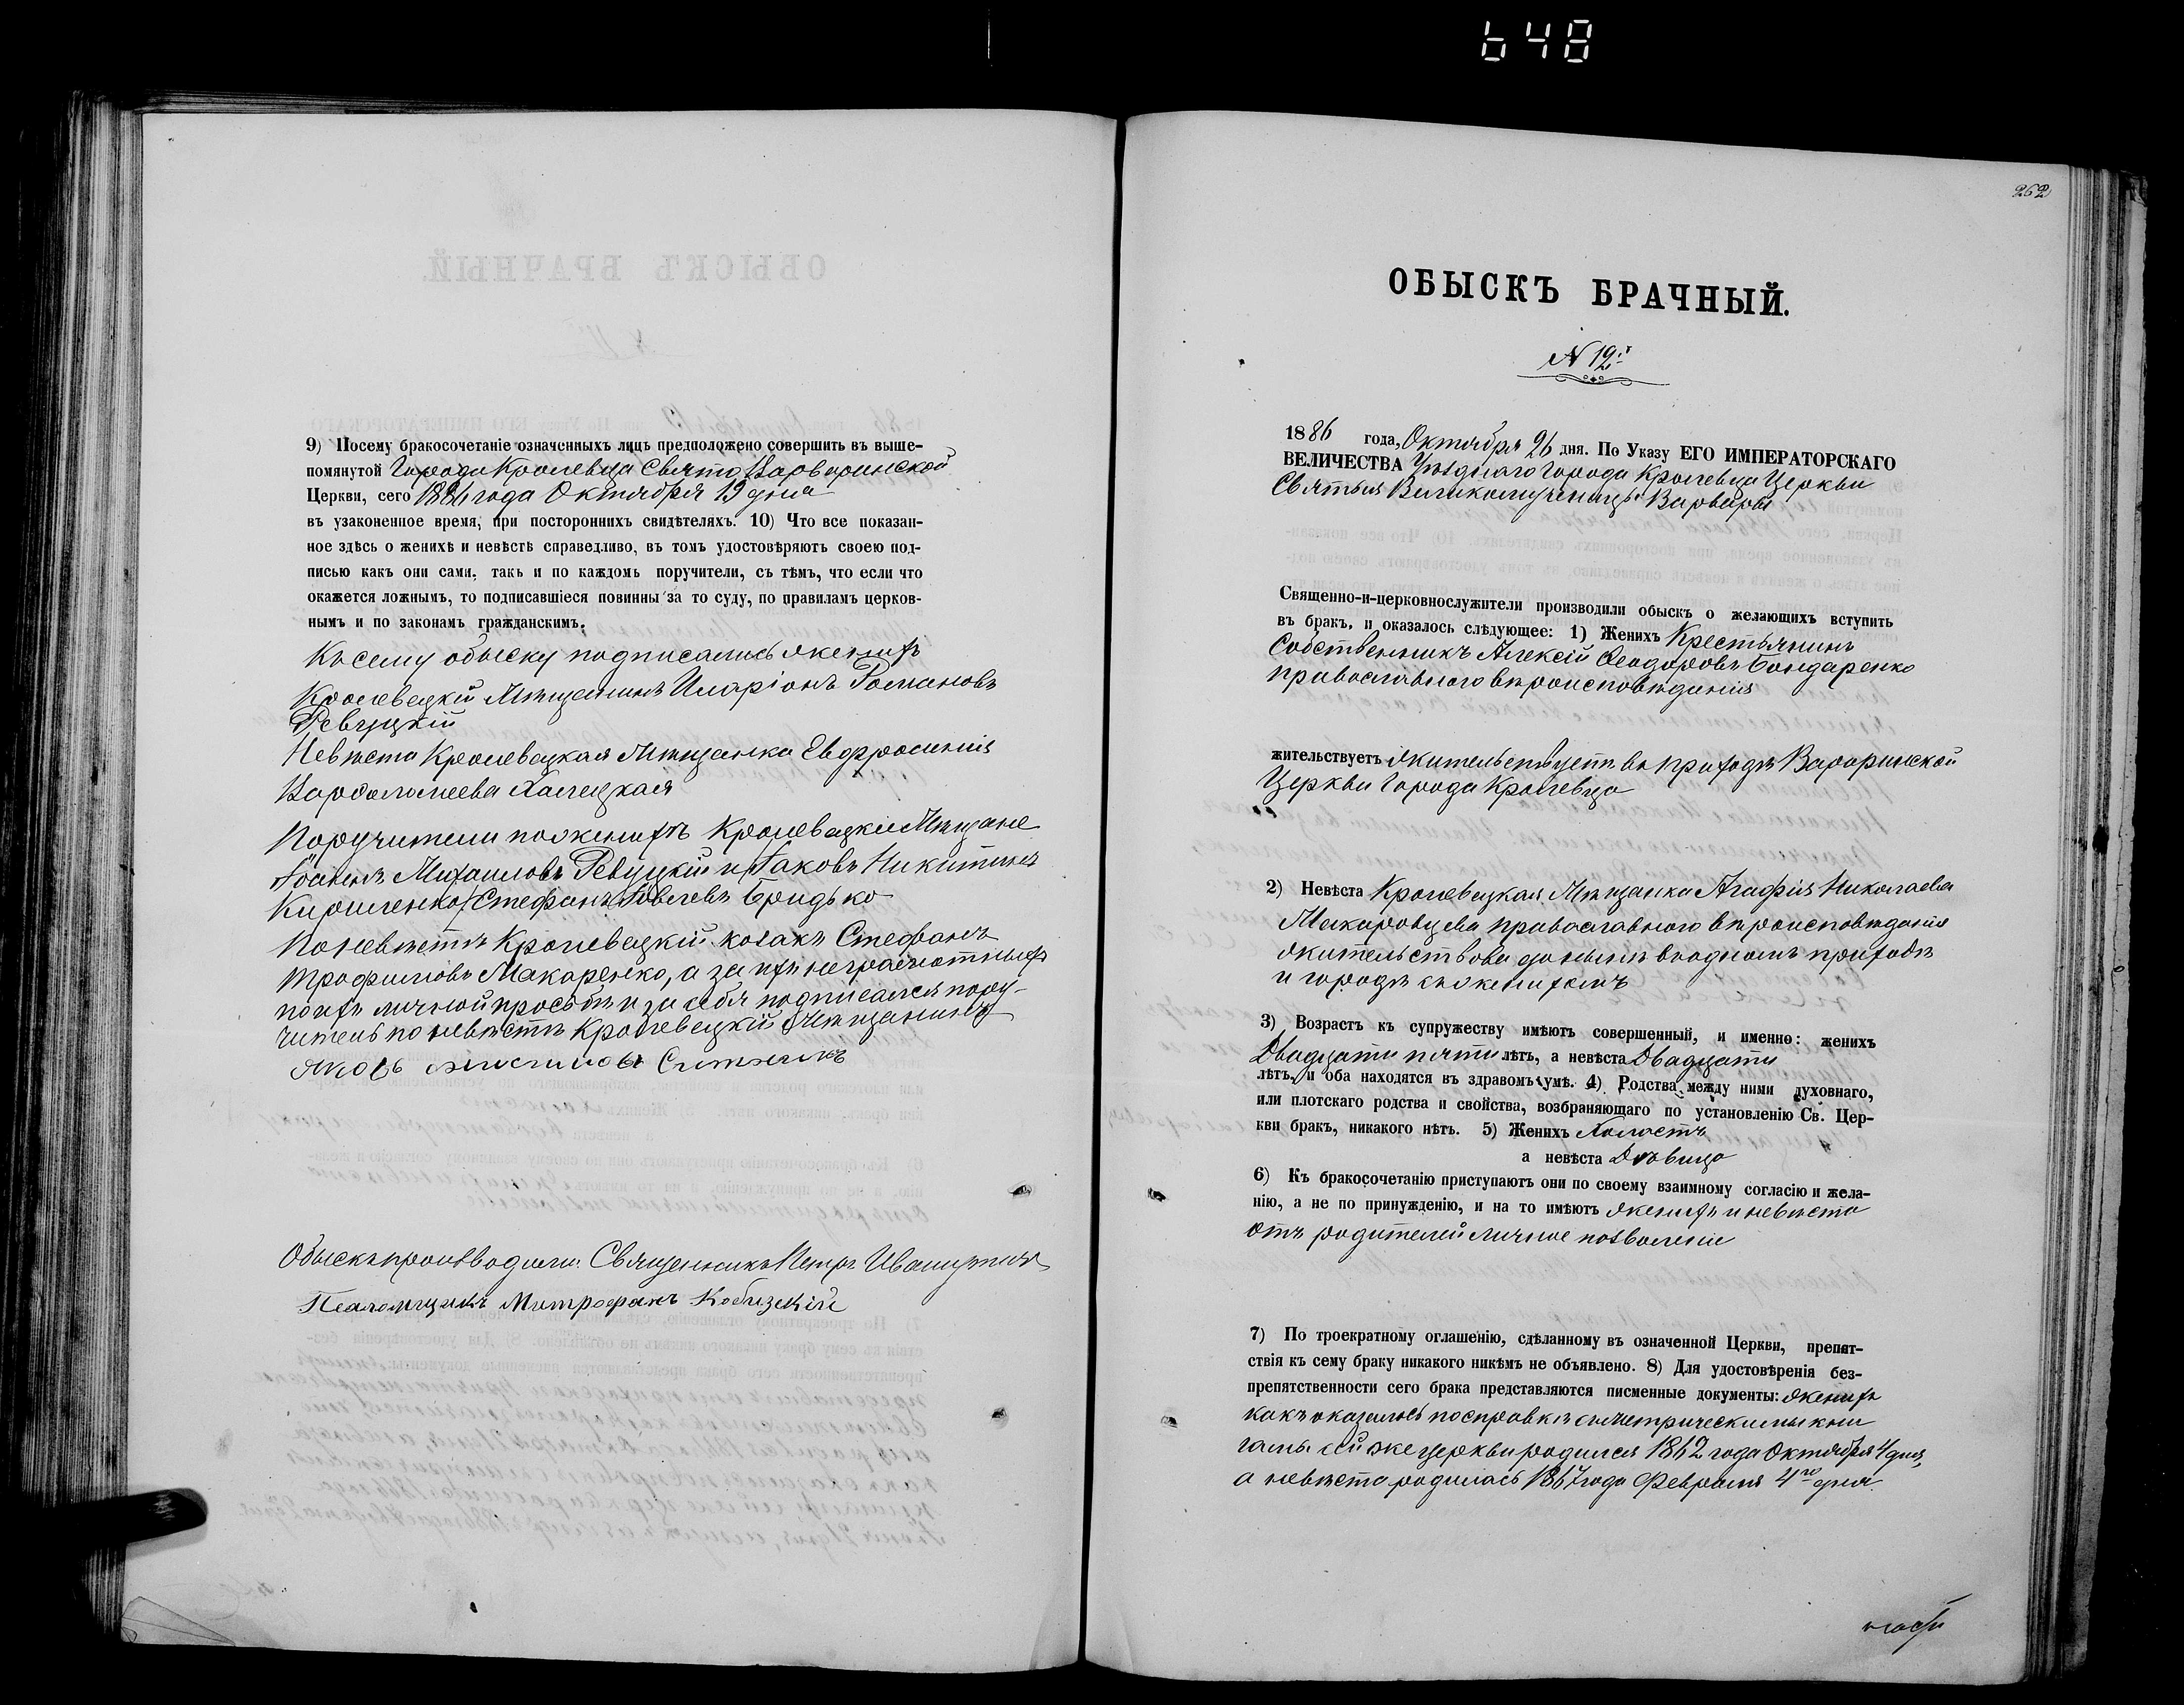 648
9) Посему бракосочетаніе означенныхъ лицъ предположено совершить въ выше-
помянутой Города Кролевца Свято Варваринской
Церкви, сего 1886 года Октября 19 дня
въ узаконенное время, при постороннихъ свидѣтеляхъ. 10) Что все показан-
ное здѣсь о женихѣ и невѣстѣ справедливо, въ томъ удостовѣряютъ своею под-
писью какъ они сами, такъ и по каждомъ поручители, съ тѣмъ, что если что
окажется ложнымъ, то подписавшіеся повинны за то суду, по правиламъ церков-
нымъ и по законамъ гражданскимъ.
Къ сему обыску подписались женихъ
Кролевецкій Мѣщанинъ Иларіонъ Романовъ
Ревуцкій
Невѣста Кролевецкая Мѣщанка Евфросинія
Варфоломеева Халецкая
Поручители по женихѣ Кролевецкіе Мѣщане
Іоаннъ Михаиловъ Ревуцкій и Іаковъ Никитинъ
Кириленко, Стефанъ Іовлевъ Бридько
По невѣстѣ Кролевецкій козакъ Стефанъ
Трофимовъ Макаренко, а за ихъ неграмотныхъ
по ихъ личной просьбѣ и за себя подписался пору-
читель по невѣстѣ Кролевецкій Мѣщанинъ
Яковъ
Обыскъ производили: Священникъ Петръ
Псаломщикъ Митрофанъ Кобизскій
262
ОБЫСКЪ БРАЧНЫЙ.
N 12й
1886 года, Октября 26 дня. По Указу ЕГО ИМПЕРАТОРСКАГО
ВЕЛИЧЕСТВА Уѣзднаго Города Кролевца Церкви
Святыя Великомученицы Варвары
Священно-и-церковнослужители производили обыскъ о желающихъ вступить
въ бракъ, и оказалось слѣдующее: 1) Женихъ Крестьянинъ
Собственникъ Алексій Феодоровъ Бондаренко
православнаго вѣроисповѣданія
жительствуетъ жительствуетъ въ приходѣ Варваринской
Церкви Города Кролевца
2) Невѣста Кролевецкая Мѣщанка Агафія Николаева
Макаровцева православнаго вѣроисповѣданія
жительствова до нынѣ въ одномъ приходѣ
и городѣ съ женихомъ
3) Возрастъ къ супружеству имѣютъ совершенный, и именно: женихъ
Двадцати пяти лѣтъ, а невѣста Двадцати
лѣтъ, и оба находятся въ здравомъ умѣ. 4) Родства между ними духовнаго,
или плотскаго родства и свойства, возбраняющаго по установленію Св. Цер-
кви бракъ, никакого нѣтъ. 5) Женихъ Холостъ
а невѣста Дѣвица
6) Къ бракосочетанію приступаютъ они по своему взаимному согласію и жела-
нію, а не по принужденію, и на то имѣютъ женихъ и невѣста
отъ родителей личное позволеніе
7) По троекратному оглашенію, сдѣланному въ означенной Церкви, препят-
ствія къ сему браку никакого никѣмъ не объявлено. 8) Для удостовѣренія без-
препятственности сего брака представляются писменные документы: женихъ
какъ оказалось по справкѣ съ метрическими кни
гами сей же церкви родился 1862 года Октября 4 дня,
а невѣста родилась 1867 года Февраля 4го дня.